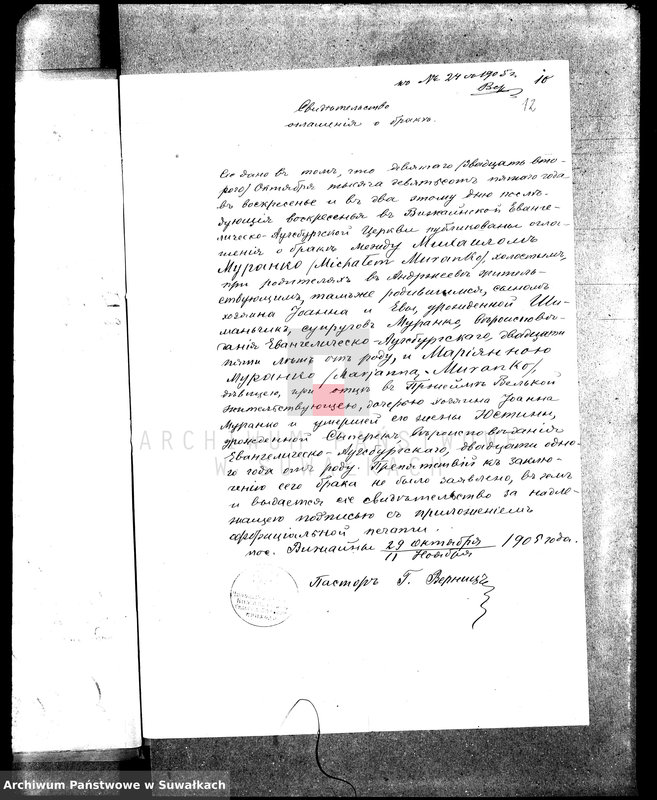 къ № 24 за 1905 г.
10
12
Свидѣтельство
оглашенія о бракѣ.
Сіе дано въ томъ, что девятаго /двадцать вто-
рого/ Октября тысяча девятьсотъ пятаго года
въ воскресенье и въ два этому дню послѣ-
дующія воскресенья въ Вижайнской Еванге-
лическо-Аугсбургской Церкви публикованы огла-
шенія о бракѣ между Михаиломъ
Муранко /Michałem Murańko/ холостымъ,
при родителяхъ въ Андржеевѣ житель-
ствующимъ, тамъже родившимся, сыномъ
хозяина Іоанна и Евы, урожденной Ши-
маньчикъ, супруговъ Муранко, вѣроисповѣ-
данія Евангелическо-Аугсбургскаго, двадцати
пяти лѣтъ отъ роду, и Маріянною
Муранко /Marjanną Murańko/,
дѣвицею, при отцѣ въ Велькой
жительствующею, дочерью хозяина Іоанна
Муранко и умершей его жены Юстины,
урожденной вѣроисповѣданія
Евангелическо-Аугсбургскаго, двадцати одно-
го года отъ роду. Препятствій къ заклю-
ченію сего брака не было заявлено, въ чемъ
и выдается сіе свидѣтельство за надле-
жащею подписью съ приложеніемъ
оффиціальной печати.
пос. Вижайны 29 Октября / 11 Ноября 1905 года.
Пасторъ Г.
ARCHIWUM PAŃSTWOWE
W SUWAŁKACH
Archiwum Państwowe w Suwałkach